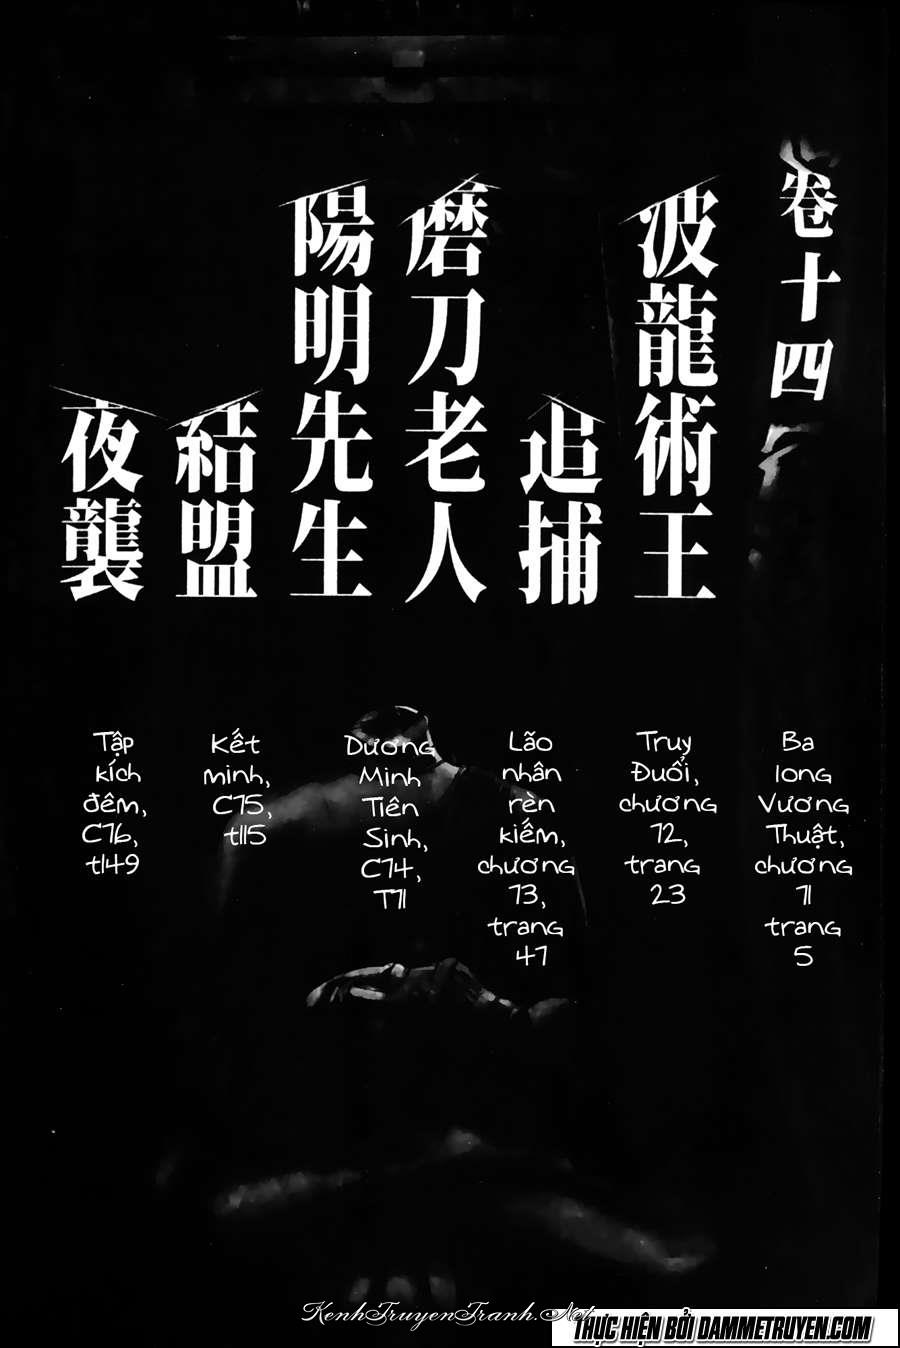 卷十四
波龍術王
追捕
磨刀老人
陽明先生
結盟
夜襲
Tập
kích
đêm,
C76,
t149
Kết
minh,
C75,
t115
Dương
Minh
Tiên
Sinh,
C74,
T71
Lão
nhân
rèn
kiếm,
chương
73,
trang
47
Truy
Đuổi,
chương
72,
trang
23
Ba
long
Vương
Thuật,
chương
71
trang
5
KenhTruyenTranh.Net
THỰC HIỆN BỞI DAMMETRUYEN.COM